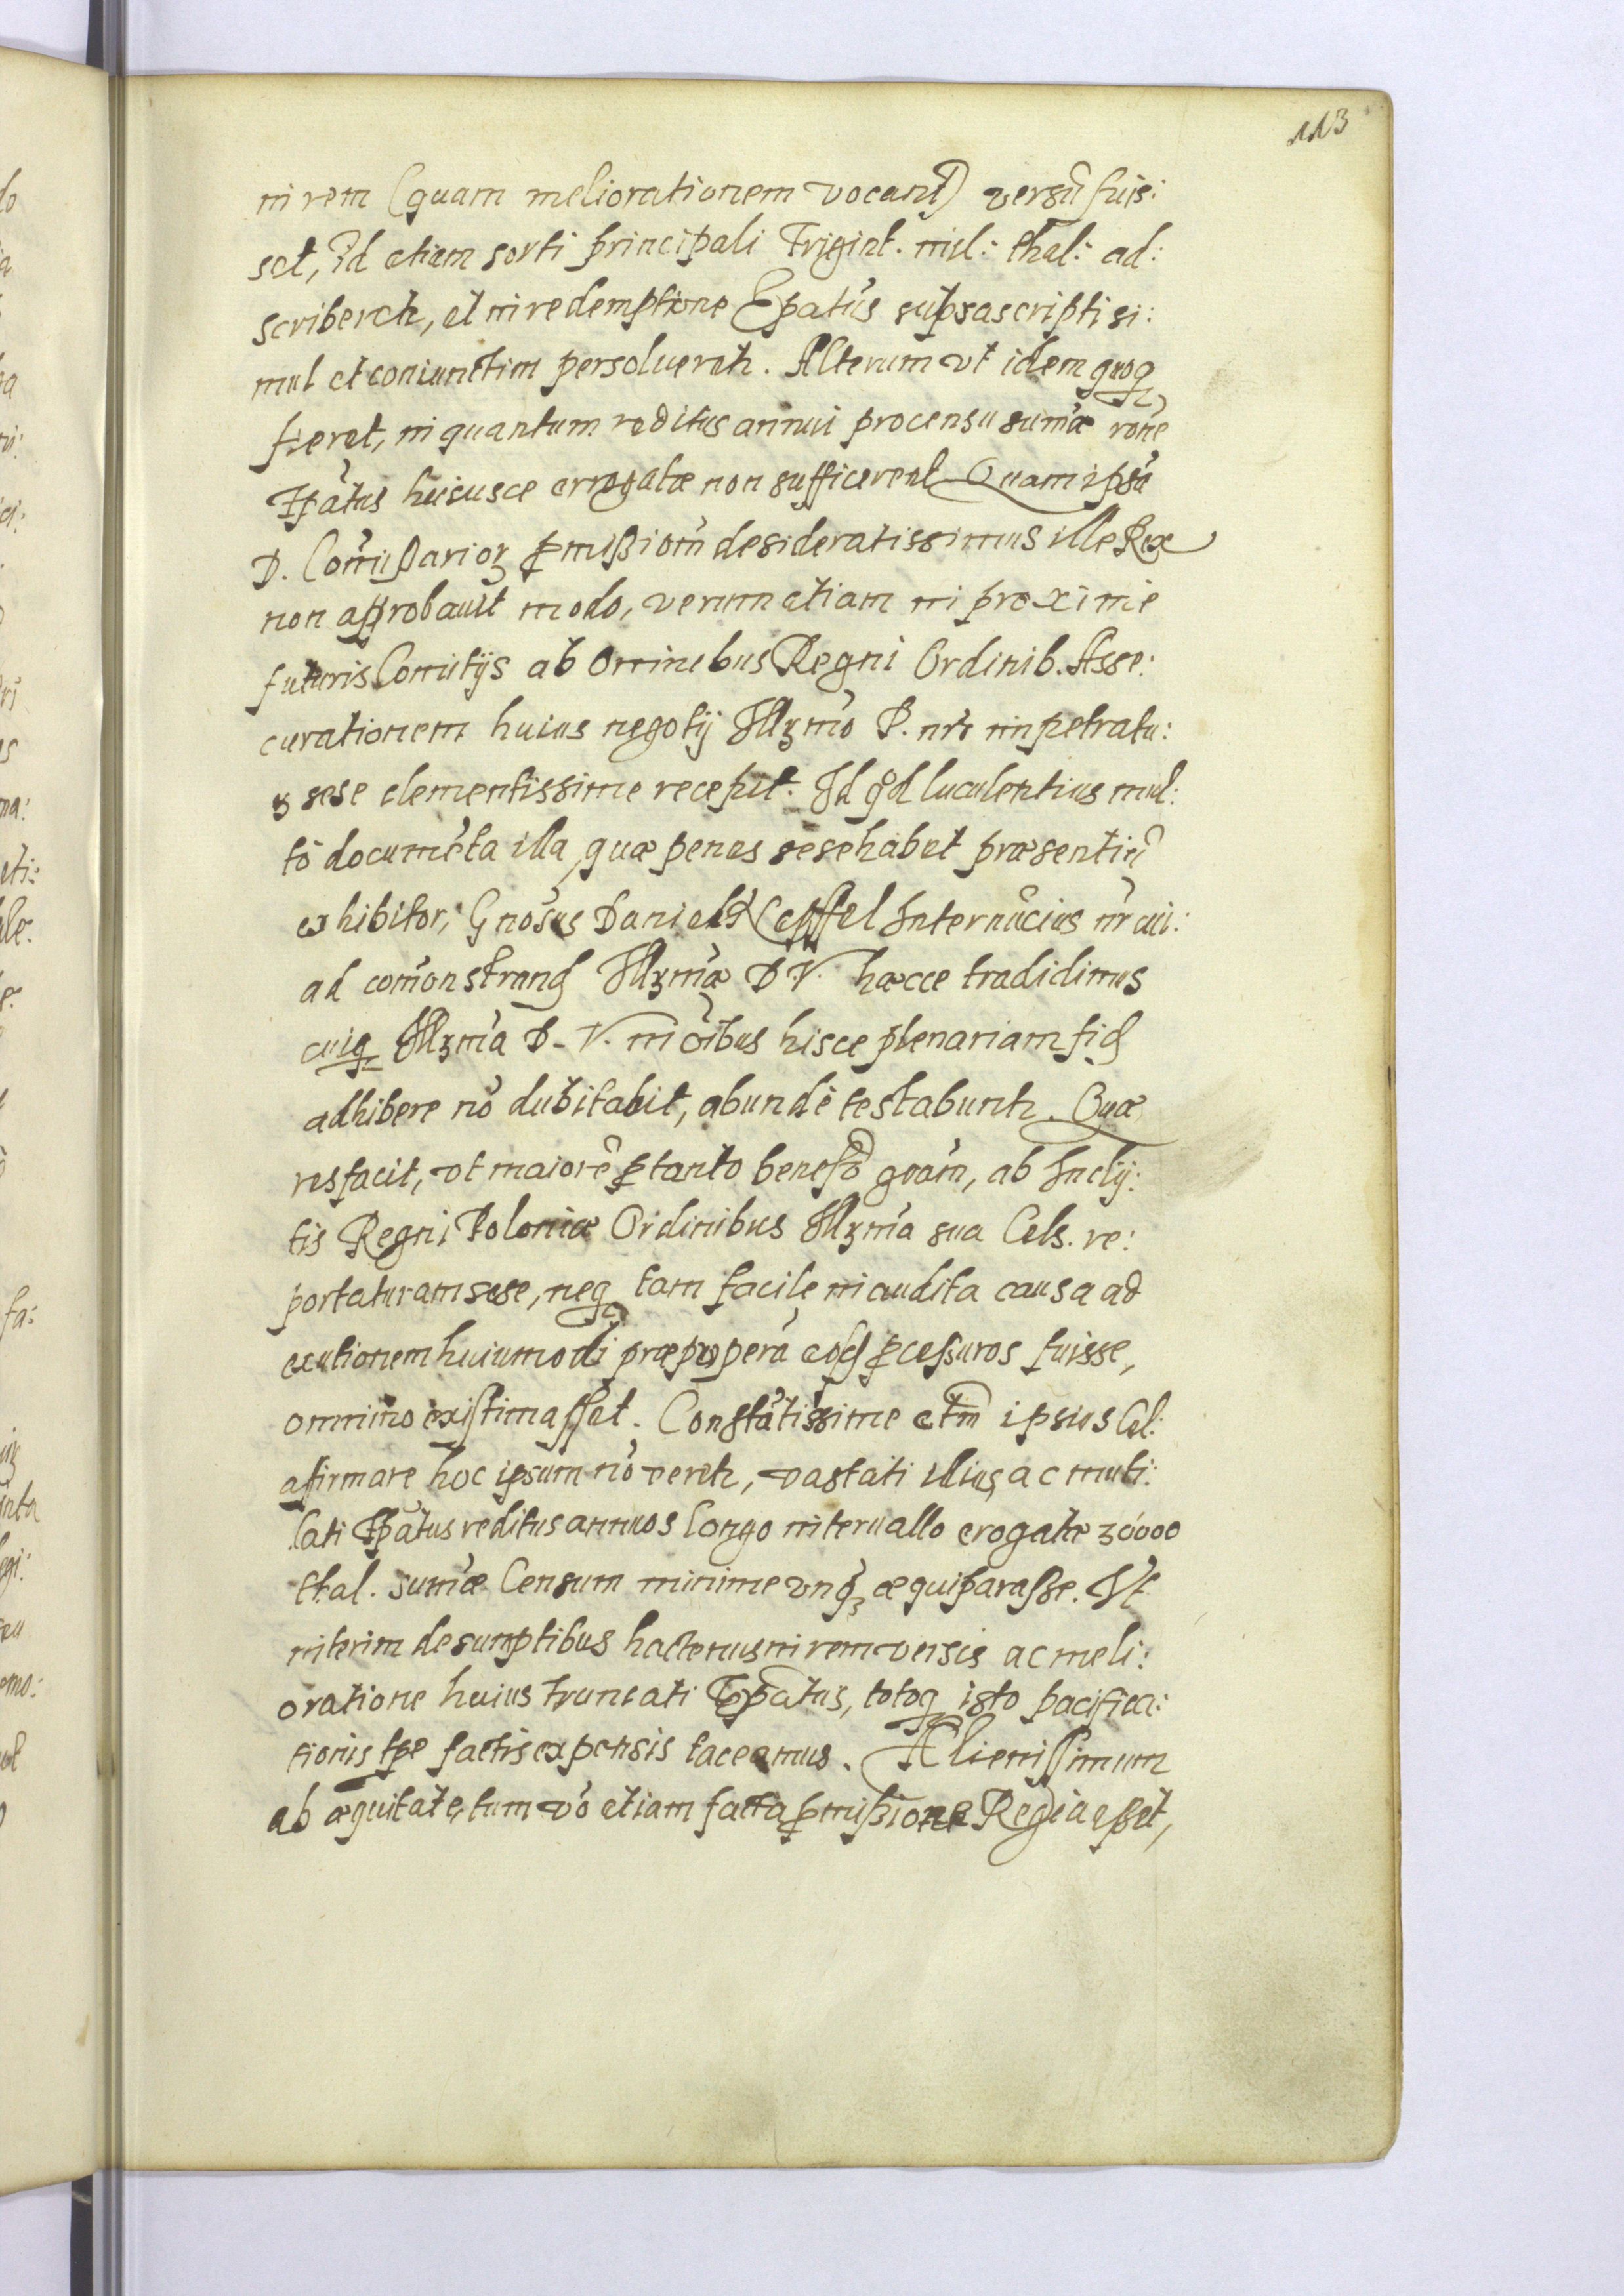 113
in rem (quam meliorationem vocant) versũ fuis:
set, id etiam sorti principali Trigint. mil: thal: ad:
scriberetr, et in redemptione Epatus supsascripti si:
mul et coniunctim persolueretr. Alterum vt idem quoq
fieret, in quantum reditus annui pro censu sum̃æ rone
Epatus huiusce errogatæ non sufficerent Quam ipsã
D. Com̃issarioꝝ ꝓmißiom̃ desideratissimus ille Rex
non approbauit modo, verum etiam in proximè
futuris Comitijs ab Omnibus Regni Ordinib. Asse:
curationem huius negotij Illꝫmo P. nro impetratu:
ꝝ sese clementissime recepit. Id qd luculentius mul:
tò documẽta illa, quæ penes sese habet præsentiũ
exhibitor, Gnosus Daniel Internũcius nr cui:
ad com̃onstrand Illꝫmæ D.V. hæcce tradidimus
cuiq Illꝫma D. V. in oibus hisce plenariam fid
adhibere nõ dubitabit, abundè testabuntr. Quæ
res facit, vt maiorẽ ꝓ tanto benefõ grãm, ab Incly:
tis Regni Poloniæ Ordinibus Illꝫma sua Cels. re:
portaturam sese, neq tam facile inaudita causa ad
exutionem huiumodi præproperã eosd ꝓceßuros fuisse,
omnino existimasset. Constãtissime etm̃ ipsius Cel:
afirmare hoc ipsum nõ veretr, vastati illius, ac muti:
lati Epatus reditus annuos longo interuallo erogatæ 30000
thal. sum̃æ Censum minime vnqꝫ æquiparasse. Vt
interim de sumptibus hactenus in rem versis ac meli:
oratione huius truncati Epatus, totoq isto pacifica:
tionis tpe factis expensis taceamus. Alienissimum
ab æquitate, tum vò etiam facta ꝓmißione Regia eßet,